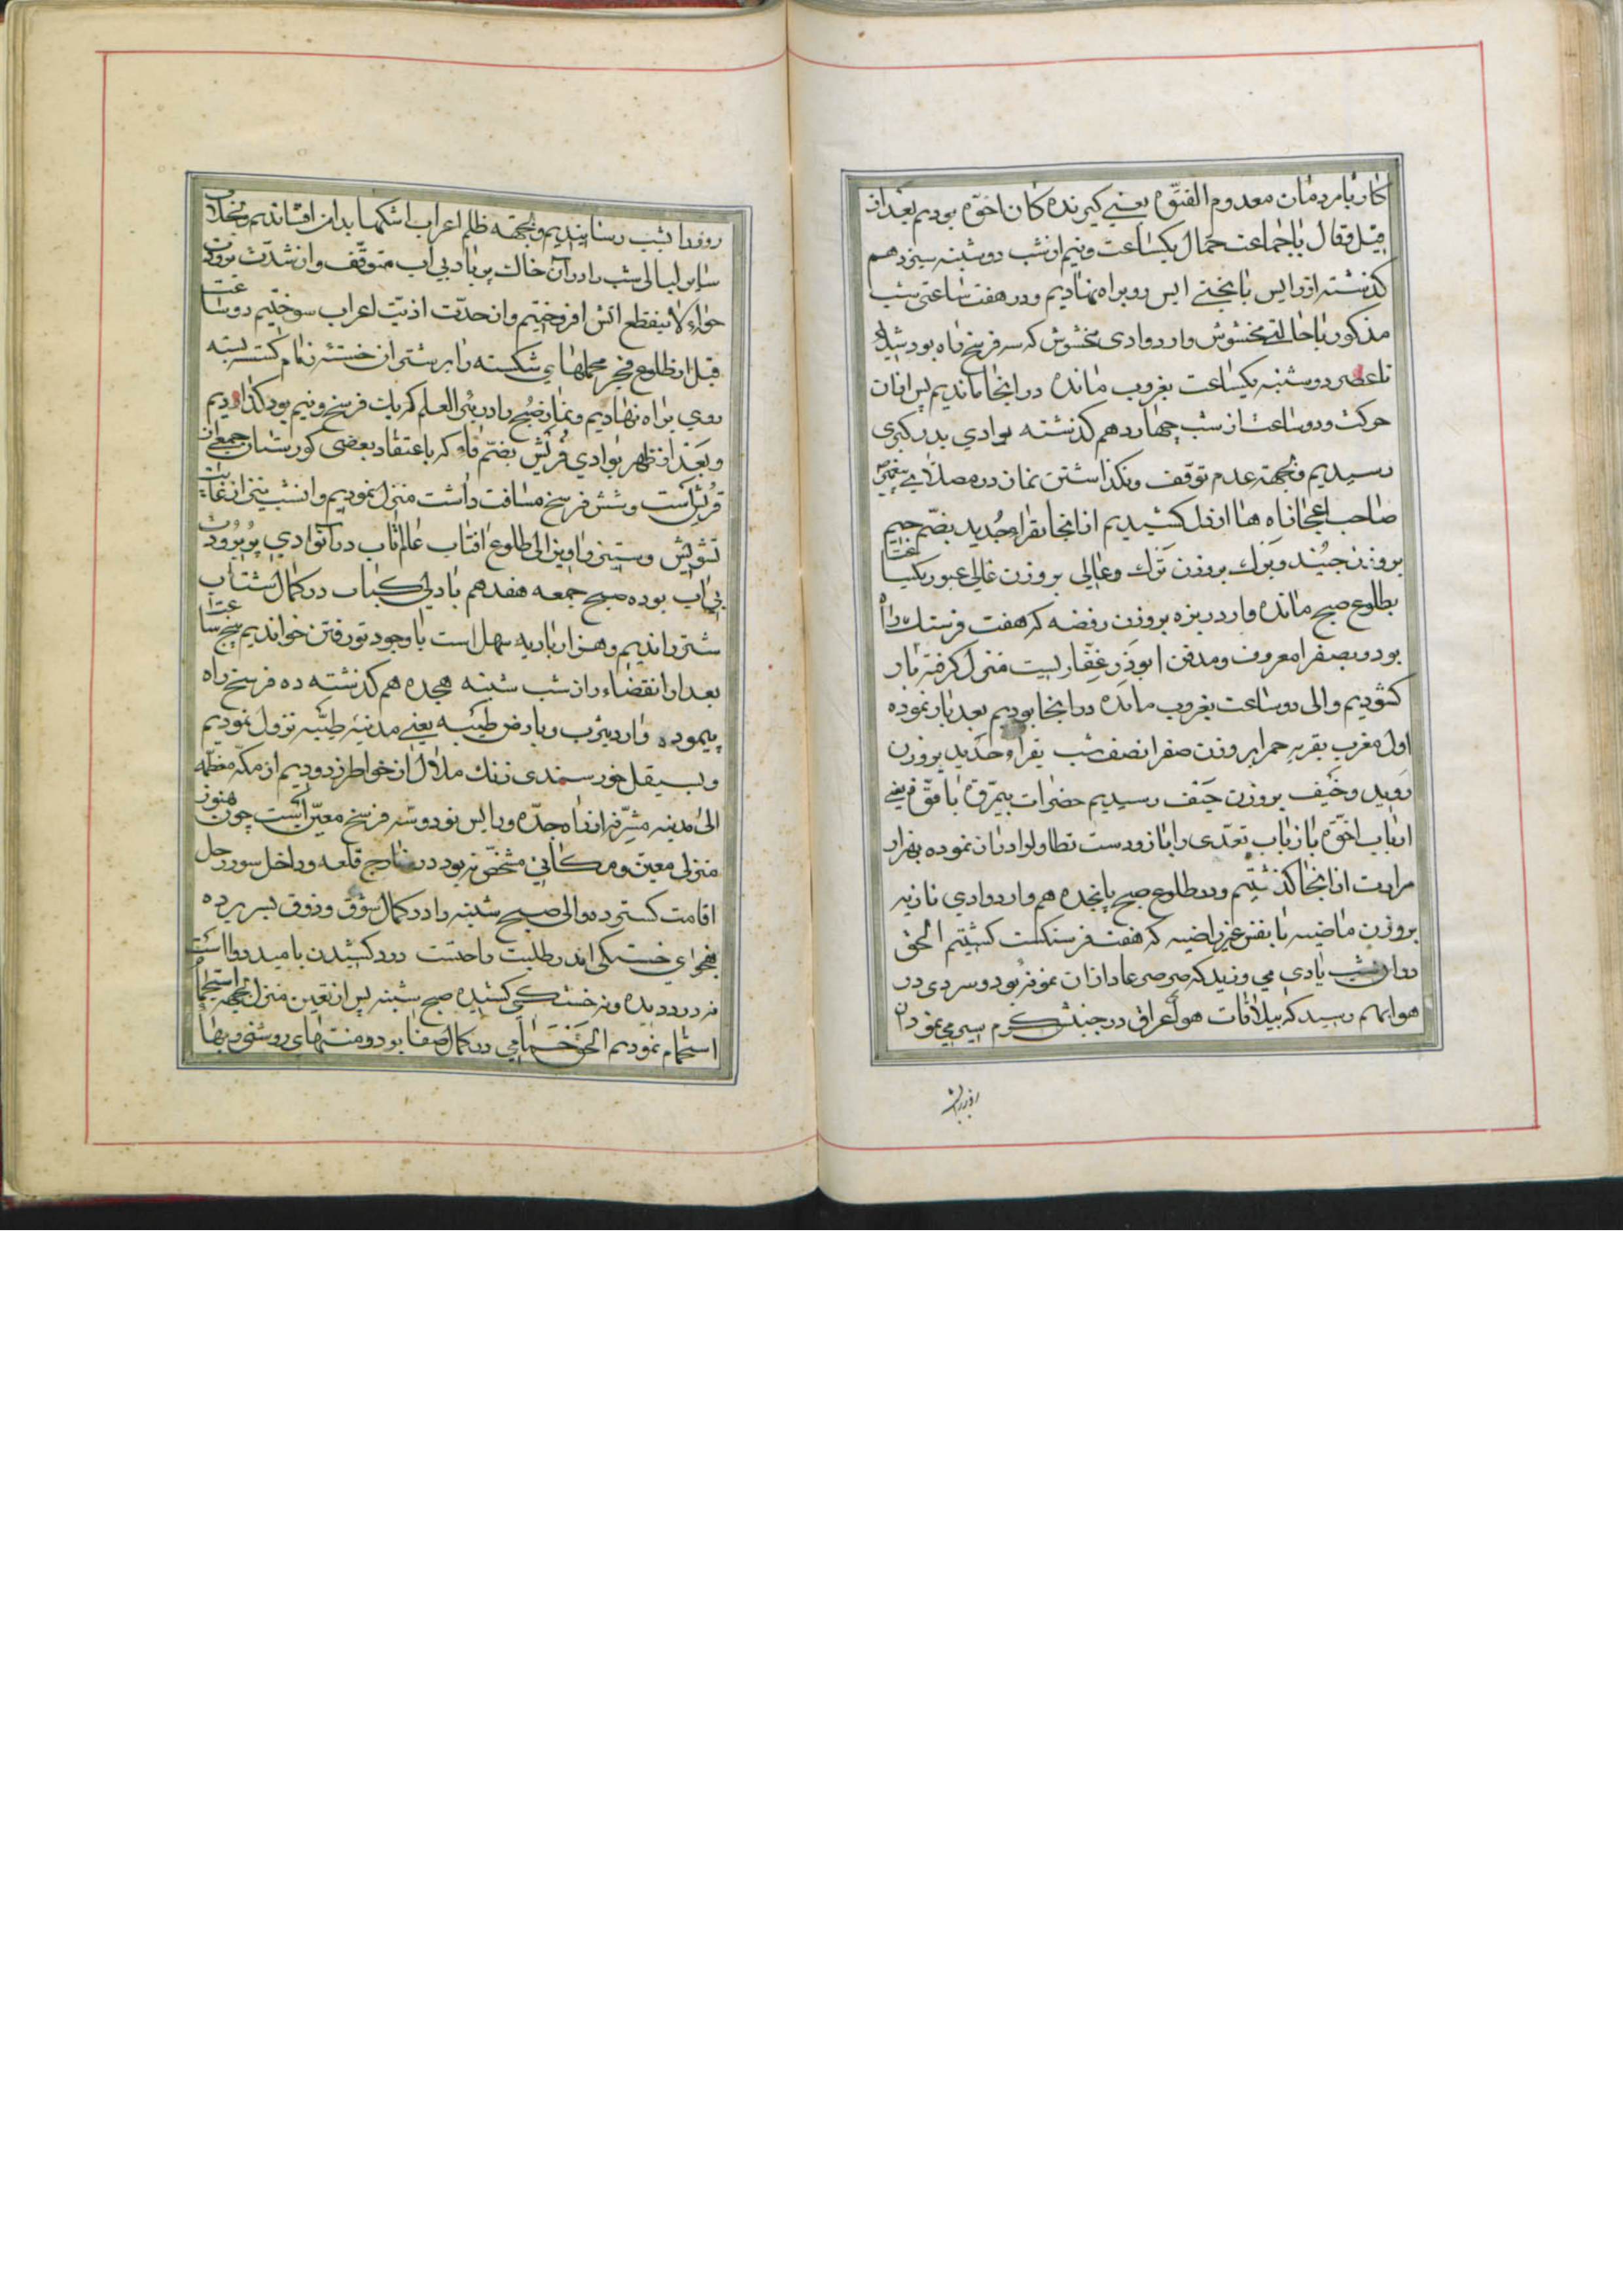 کار با مردمان معدوم الفتوّه یعنی گیرنده کان اخوّه بودیم بعد از
قیل و قال با جماعت جمال یکساعت و نیم از شب دوشنبه سیزدهم
کذشته از رایس با بختی ایس رو براه نهادیم و در هفت ساعتی شب
مذکور با حالتی مخشوش وارد وادی مخشوش که سه فرسخ راه بود شدیم
تا عصر دوشنبه یکساعت بغروب مانده در آنجا ماندیم پس از آن
حرکت و دو ساعت از شب چهاردهم کذشته بوادی بدر کبری
رسیدیم و بجهته عدم توقف و نکذاشتن نماز در مصلای پیغمبر
صاحب اعجاز آه ها از دل کشیدیم از آنجا بقراء جُدید بضمّ جیم
بروزن جُنید و بَزك بروزن تَرك و عٰالی بروزن غالی عبور یکساعت
بطلوع صبح مانده وارد بزه بروزن رفضه که هفت فرسنك راه
بود و بصفرا معروف و مدفن ابوذر غفّاریست منزل کرفته بار
کشودیم و الی دو ساعت بغروب مانده در آنجا بودیم بعد بار نموده
اول مغرب بقریه حمرا بروزن صفرا نصف شب بقراء حدید بروزن
رَوید و خَیف بروزن حَیف رسیدیم حضرات بیمرّوّة با قوّة یعنی
ارباب اخوّة باز باب تعدّی را باز و دست تطاول را دراز نموده بهزار
مرارت از آنجا کذشتیم و در طلوع صبح پانجده هم وارد وادی نازیه
بروزن ماضیه با نفس غیر راضیه که هفت فرسنکست کشیتم الحق
در آن شب بادی می وزید که صرصر عاد از آن نمونه بود و سردی در
هوا بهم رسید که ییلاقات هوای عراق در جنبش کرم سیر می نمود آن
روز را بشب
روز را بشب رسانیدیم و بجهته ظلم اعراب اشکها بدامن افشاندیم بخلاف
سایر لیالی شب را در آن خاك پر باد بی آب متوقّف و از شدّت برودت
هواء لاینقطع آتش افروختیم و از حدّت اذیّت اعراب سوختیم دو ساعت
قبل از طلوع فجر محملهای شکسته را بر شتران خسته زمام کسسته بسته
روی براه نهادیم و نماز صبح را در بئر العلم که یك فرسخ و نیم بود کذاردیم
و بعد از ظهر بوادی فُریش بضمّ فاء که باعتقاد بعضی کورستان جمعی از
قریش است و شش فرسخ مسافت داشت منزل نمودیم و آنشب نیز از غایت
تشویش و ستیز و آویز الی طلوع آفتاب عالمتاب در آنوادی پر برودت
بی آب بوده صبح جمعه هفدهم با دلی کباب در کمال شتاب
شتر راندیم و هزار بادیه سهل است با وجود تو رفتن خواندیم پنج ساعت
بعد از انقضاء از شب شنبه هیجده هم کذشته ده فرسخ راه
پیموده وارد یثرب و بارض طَیّبه یعنی مدینه طیّبه نزول نمودیم
و بصیقل خورسندی زنك ملال از خواطر زدودیم از مکّه معظّمه
الی مدینه مشرّفه از راه جدّه و رایس نود و سه فرسخ معیّن است چون هنوز
منزلی معین و مکانی مشخص نبود در خارج قلعه و داخل سور رحل
اقامت کسترده و الی صبح شنبه را در کمال شوق و ذوق بسر برده
بفحوای خستکی اندر طلبت راحتست درد کشیدن بامید دوا است
نه درد دیده و نه خستکی کشیده صبح شنبه پس از تعین منزل بجهه استحمام
استحمام نمودیم الحق حمّامی در کمال صفا بود و منتهای روشنی و بها